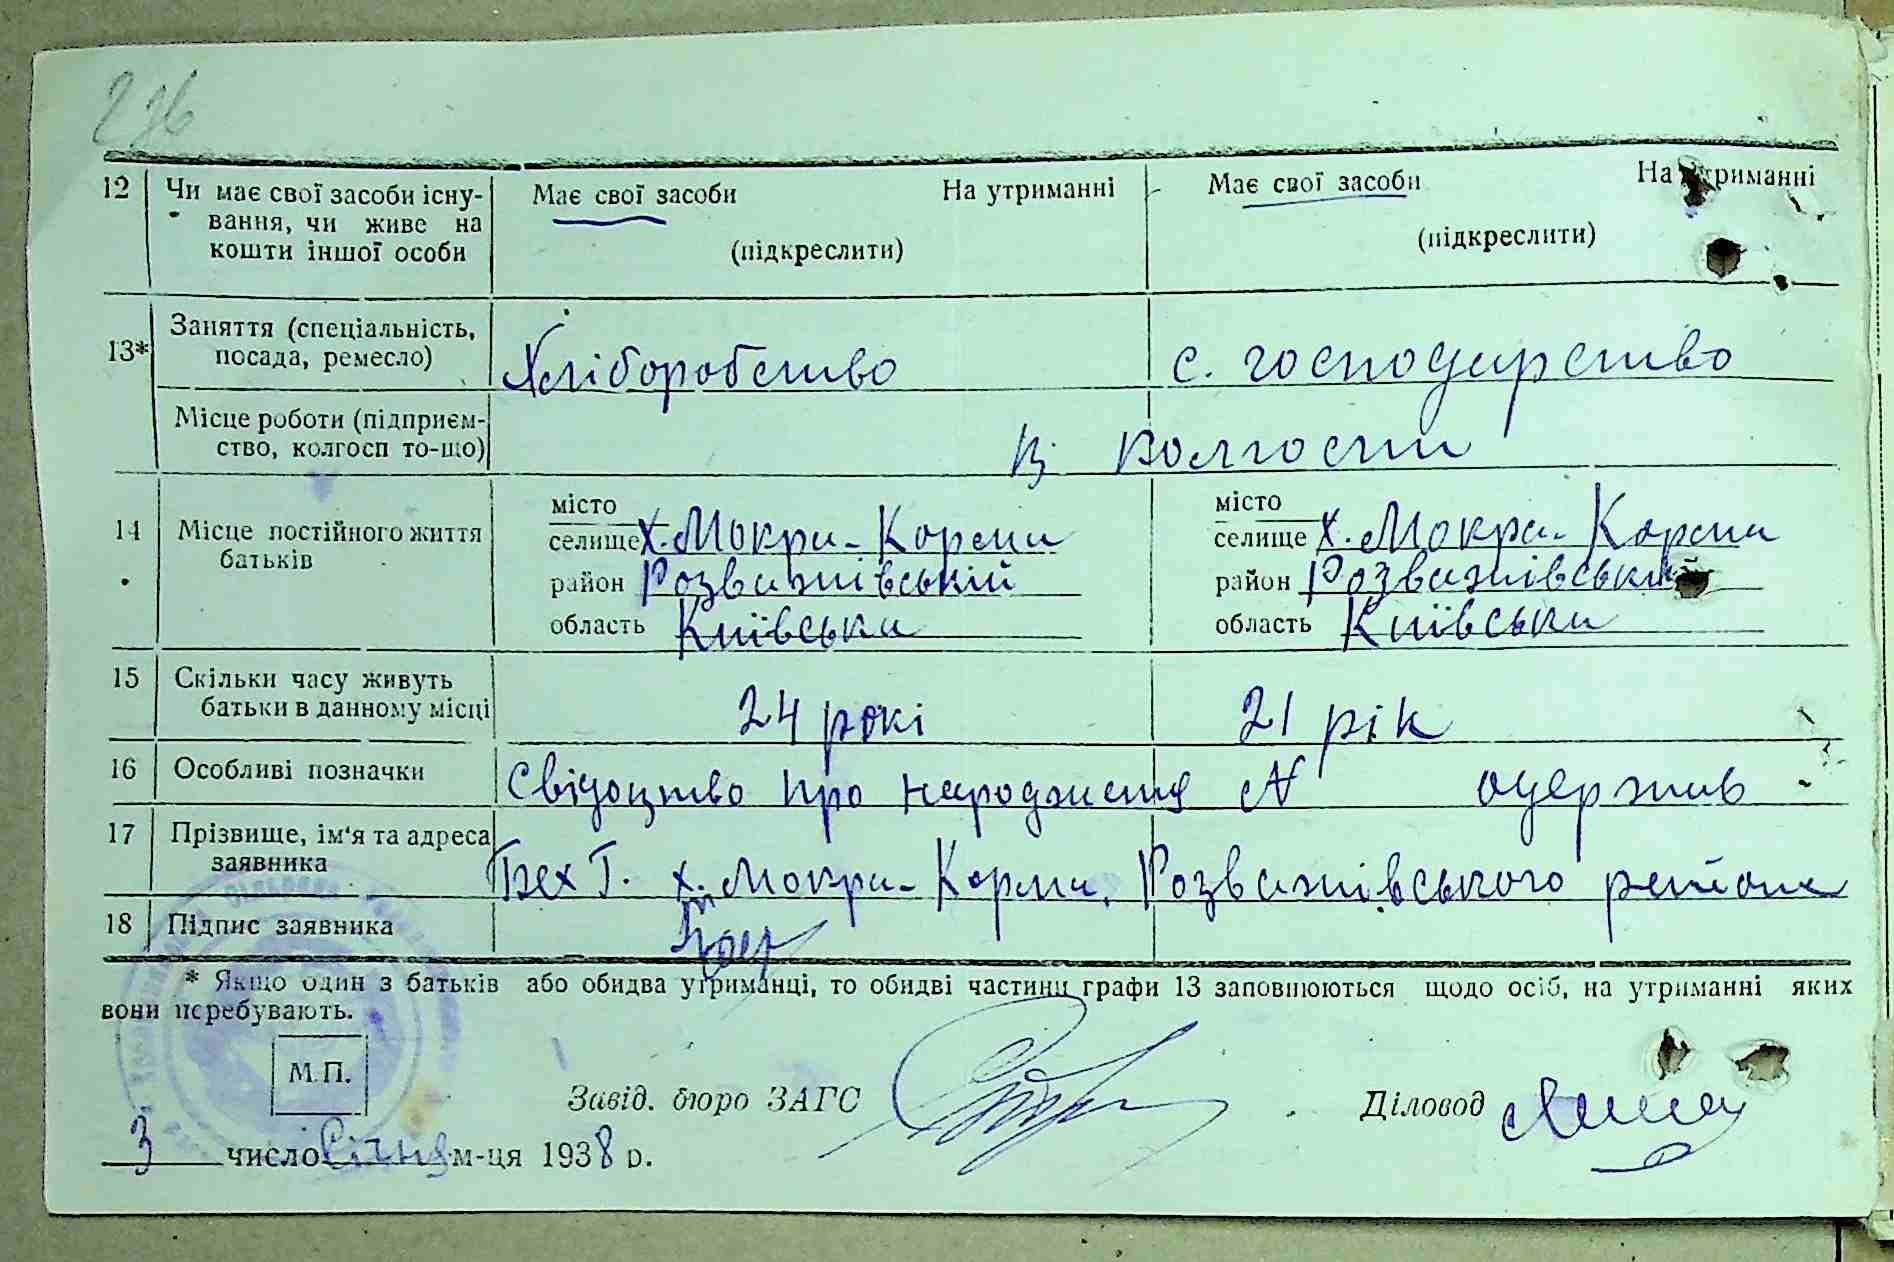 236
12 Чи має свої засоби існу- Має свої засоби На утриманні Має свої засоби На утриманні
вання, чи живе на
кошти іншої особи (підкреслити) (підкреслити)
13* Заняття (спеціальність,
посада, ремесло) Хліборобство с. господарство
Місце роботи (підприєм-
ство, колгосп то-що) в колгоспи
14 Місце постійного життя
батьків
місто місто
селище х. Мокра-Корма селище х. Мокра-Корма
район Розважівській район Розважівський
область Київська область Київська
15 Скільки часу живуть
батьки в данному місці 24 рокі 21 рік
16 Особливі позначки Свідоцтво про народження N одержив
17 Прізвище, ім'я та адреса
заявника Бех Г. х. Мокра-Корма, Розважівського района
18 Підпис заявника
* Якщо один з батьків або обидва утриманці, то обидві частини графи 13 заповнюються щодо осіб, на утриманні яких
вони перебувають.
М.П.
Завід. бюро ЗАГС Діловод
3 число Січня м-ця 1938 р.